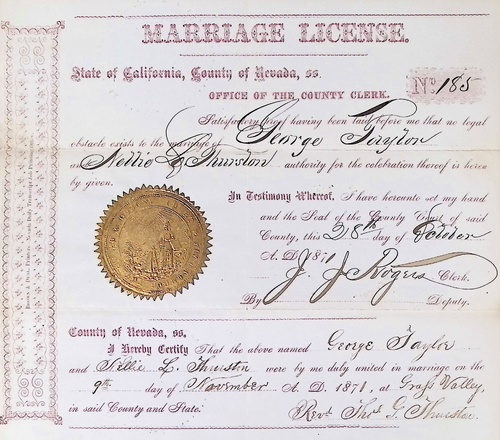 MARRIAGE LICENSE.
State of California, County of Nevada, ss.
No. 185
OFFICE OF THE COUNTY CLERK.
Satisfactory proof having been laid before me that no legal
obstacle exists to the marriage of George Taylor
and Nellie L. Thurston authority for the celebration thereof is hereby given.
In Testimony Whereof, I have hereunto set my hand
and the Seal of the County Court of said
County, this 28th day of October
A. D. 1871
J. J. Rogers Clerk.
By Deputy.
County of Nevada, ss.
I Hereby Certify That the above named George Taylor
and Nellie L. Thurston were by me duly united in marriage on the
9th day of November A. D. 1871, at Grass Valley,
in said County and State.
Revd Thos G. Thurston